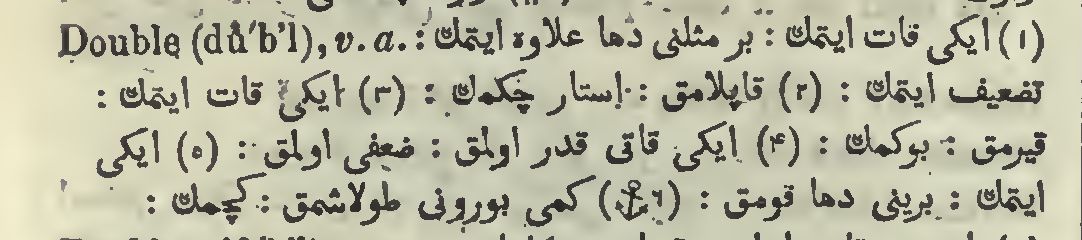 Double (dŭ′b'l), v. a. : (۱) ایکی قات ایتمك : بر مثلنی دها علاوه ایتمك
تضعیف ایتمك : (۲) قاپلامق : استار چكمك : (۳) ایکی قات ایتمك :
قیرمق : بوكمك : (۴) ایکی قاتی قدر اولمق : ضعفی اولمق : (٥) ایکی
ایتمك : برینی دها قومق : (٦⚓) كمی بورونی طولاشمق : كچمك :